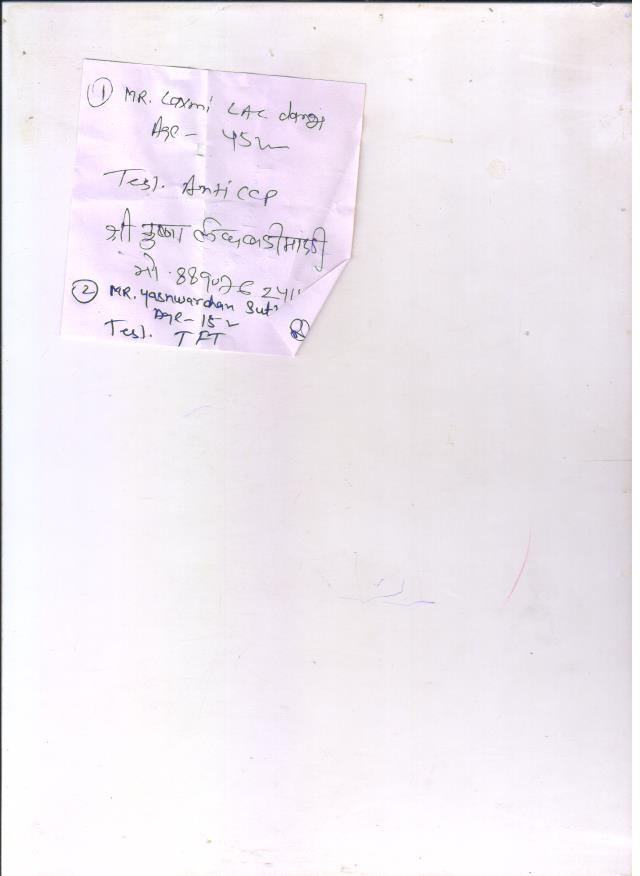 ① MR. Laxmi LAL dangi
Age - 45
Test. Anti CCP
श्री कृष्णा
मो. 889076 241
② MR. yashwardhan Sut
Age - 15
Test. TFT